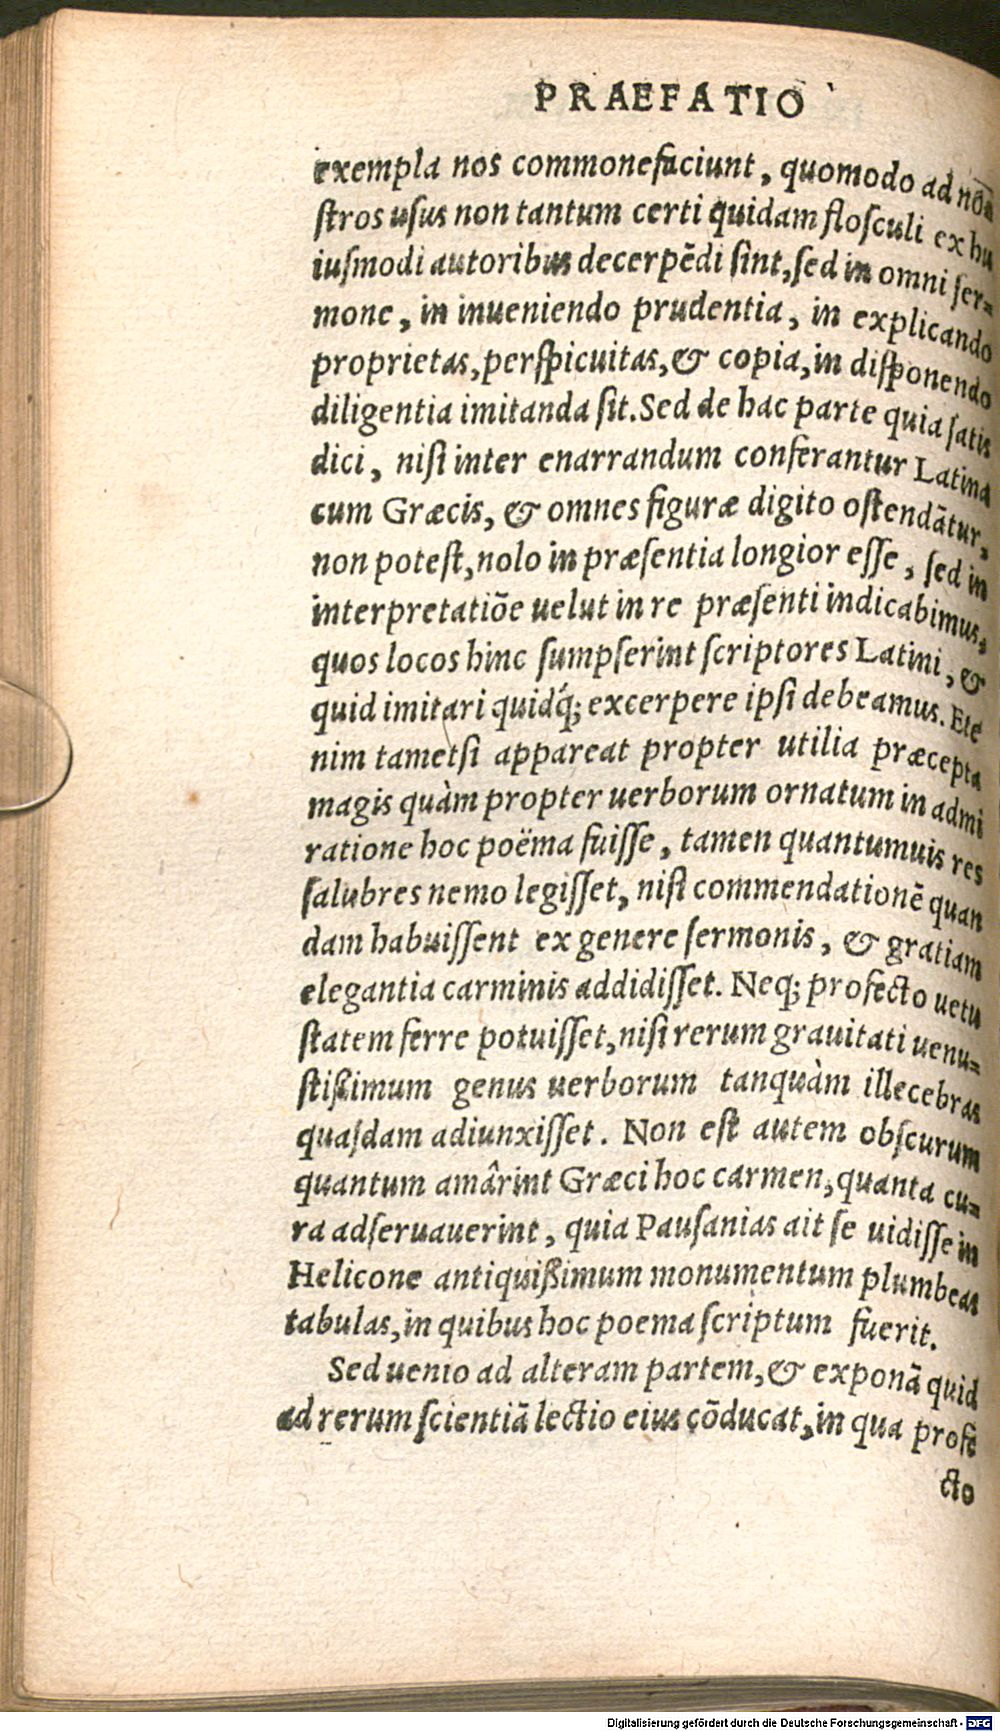 PRAEFATIO
exempla nos commonefaciunt, quomodo ad no
ſtros uſus non tantum certi quidam floſculi ex hu
iuſmodi autoribus decerpēdi ſint, ſed in omni ſer-
mone, in inueniendo prudentia, in explicando
proprietas, perſpicuitas, & copia, in diſponendo
diligentia imitanda ſit. Sed de hac parte quia ſatis
dici, niſi inter enarrandum conferantur Latina
cum Græcis, & omnes figuræ digito oſtendātur,
non poteſt, nolo in præſentia longior eſſe, ſed in
interpretatiōe uelut in re præſenti indicabimus,
quos locos hinc ſumpſerint ſcriptores Latini, &
quid imitari quidq́; excerpere ipſi debeamus. Ete
nim tametſi appareat propter utilia præcepta
magis quàm propter uerborum ornatum in admi
ratione hoc poëma fuiſſe, tamen quantumuis res
ſalubres nemo legiſſet, niſi commendationē quan
dam habuiſſent ex genere ſermonis, & gratiam
elegantia carminis addidiſſet. Neq; profecto uetu
ſtatem ferre potuiſſet, niſi rerum grauitati uenu-
ſtißimum genus uerborum tanquàm illecebras
quaſdam adiunxiſſet. Non eſt autem obſcurum
quantum amârint Græci hoc carmen, quanta cu-
ra adſeruauerint, quia Pauſanias ait ſe uidiſſe in
Helicone antiquißimum monumentum plumbeas
tabulas, in quibus hoc poema ſcriptum fuerit.
Sed uenio ad alteram partem, & exponā quid
ad rerum ſcientiā lectio eius cōducat, in qua profe
cto
Digitalisierung gefördert durch die Deutsche Forschungsgemeinschaft - DFG